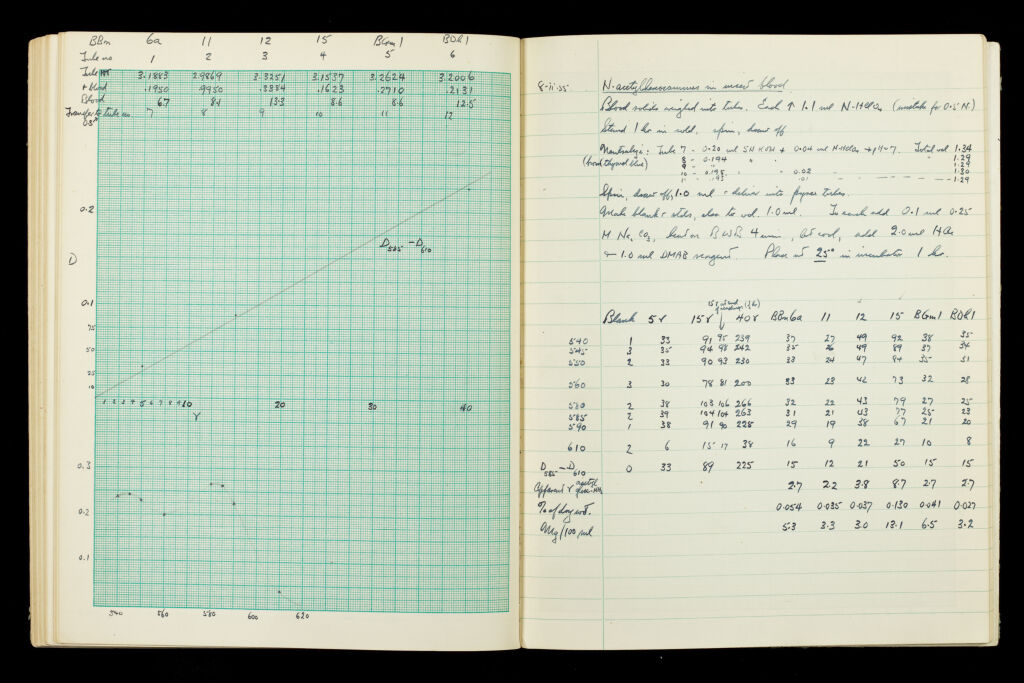 BBm 6a 11 12 15 BGm1 BDh1
Tube no 1 2 3 4 5 6
Tube wt 3.1883 2.9869 3.3251 3.1537 3.2624 3.2006
+ blood .1950 .9950 .3384 .1623 .2710 .2131
Blood 6.7 8.1 13.3 8.6 8.6 12.5
Transfer to tube no. 7 8 9 10 11 12
0.2
D585 - D610
D
0.1
75
50
25
.10
1 2 3 4 5 6 7 8 9 10 20 30 40
γ
0.3
0.2
0.1
540 560 580 600 620
8-iii-55 N-acetylglucosamines in insect blood
Blood solids weighed into tubes. Each ↑ 1.1 ml N-HClO4 (mistake for 0.5 N.)
Stand 1 hr in cold, spin, draw off
Neutralize: Tube 7 - 0.20 ml 5N KOH + 0.04 ml N-HClO4 → pH ~7. Total vol 1.34
(brom thymol blue) 8 - 0.194 " 1.29
9 - " 1.29
10 - 0.195 " 0.02 1.30
11 - .195 .01 1.29
Spin, draw off 1.0 ml & deliver into tubes.
Make blank & stds, also to vol. 1.0 ml. To each add 0.1 ml 0.25
M Na2CO3, heat on BWB 4 min, cool, add 2.0 ml HAc
+ 1.0 ml DMAB reagent. Place at 25° in incubator 1 hr.
15γ at end of readings (½hr)
Blank 5γ 15γ 40γ BBm6a 11 12 15 BGm1 BDh1
540 1 33 91 95 239 37 27 49 92 38 35
545 3 35 94 98 242 35 26 49 89 37 34
550 2 33 90 93 230 33 24 47 84 35 31
560 3 30 78 81 200 33 23 42 73 32 28
580 2 38 103 106 266 32 22 43 79 27 25
585 2 39 104 104 263 31 21 43 77 25 23
590 1 38 91 90 228 29 19 38 67 21 20
610 2 6 15 17 38 16 9 22 27 10 8
D585 - D610 0 33 89 225 15 12 21 50 15 15
Apparent γ acetyl glucos-NH2 2.7 2.2 3.8 8.7 2.7 2.7
% of dry wt. 0.054 0.035 0.037 0.130 0.041 0.027
Mg/100 ml 5.3 3.3 3.0 13.1 6.5 3.2